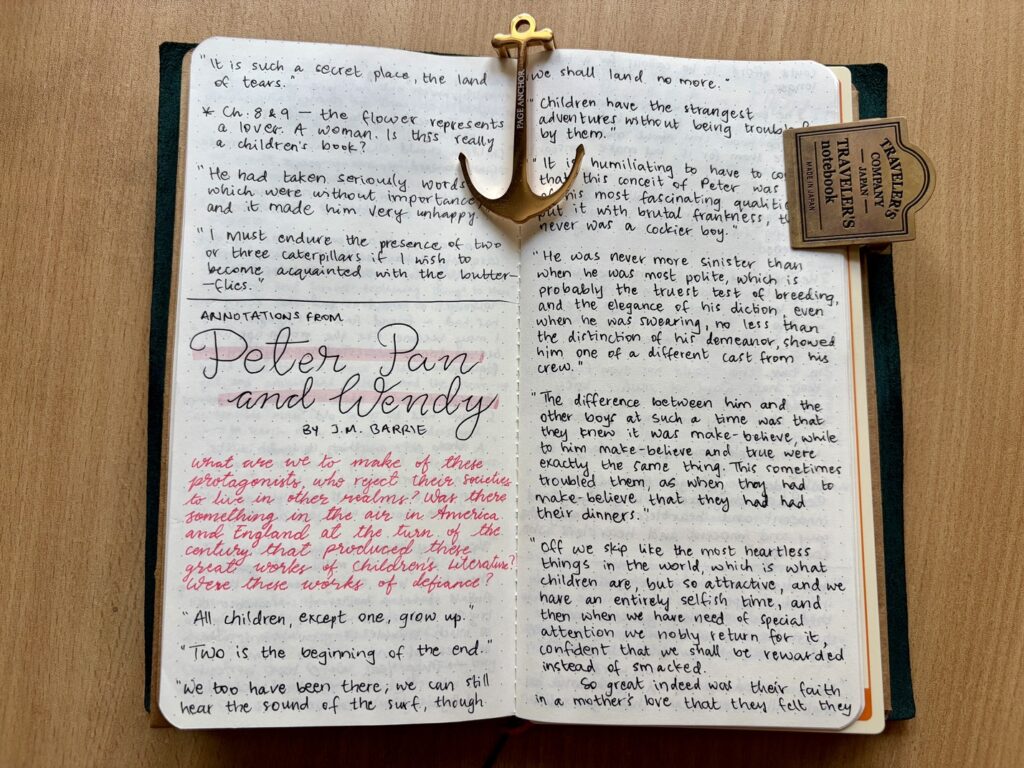 "It is such a secret place, the land
of tears."
* Ch. 8 & 9 — the flower represents
a lover. A woman. Is this really
a children's book?
"He had taken seriously words
which were without importance,
and it made him very unhappy.
"I must endure the presence of two
or three caterpillars if I wish to
become acquainted with the butter-
-flies."
ANNOTATIONS FROM
Peter Pan
and Wendy
BY J.M. BARRIE
What are we to make of these
protagonists, who reject their societies
to live in other realms? Was there
something in the air in America
and England at the turn of the
century that produced these
great works of Children's Literature?
Were these works of defiance?
"All children, except one, grow up."
"Two is the beginning of the end."
"We too have been there; we can still
hear the sound of the surf, though
we shall land no more."
"Children have the strangest
adventures without being
by them."
"It is humiliating to have to
that this conceit of Peter was
of his most fascinating
put it with brutal frankness,
never was a cockier boy."
"He was never more sinister than
when he was most polite, which is
probably the truest test of breeding,
and the elegance of his diction, even
when he was swearing, no less than
the distinction of his demeanor, showed
him one of a different cast from his
crew."
"The difference between him and the
other boys at such a time was that
they knew it was make-believe, while
to him make-believe and true were
exactly the same thing. This sometimes
troubled them, as when they had to
make-believe that they had had
their dinners."
"Off we skip like the most heartless
things in the world, which is what
children are, but so attractive, and we
have an entirely selfish time, and
then when we have need of special
attention we nobly return for it,
confident that we shall be rewarded
instead of smacked.
So great indeed was their faith
in a mother's love that they felt they
PAGE ANCHOR
TRAVELER'S
COMPANY
JAPAN
TRAVELER'S
notebook
MADE IN JAPAN